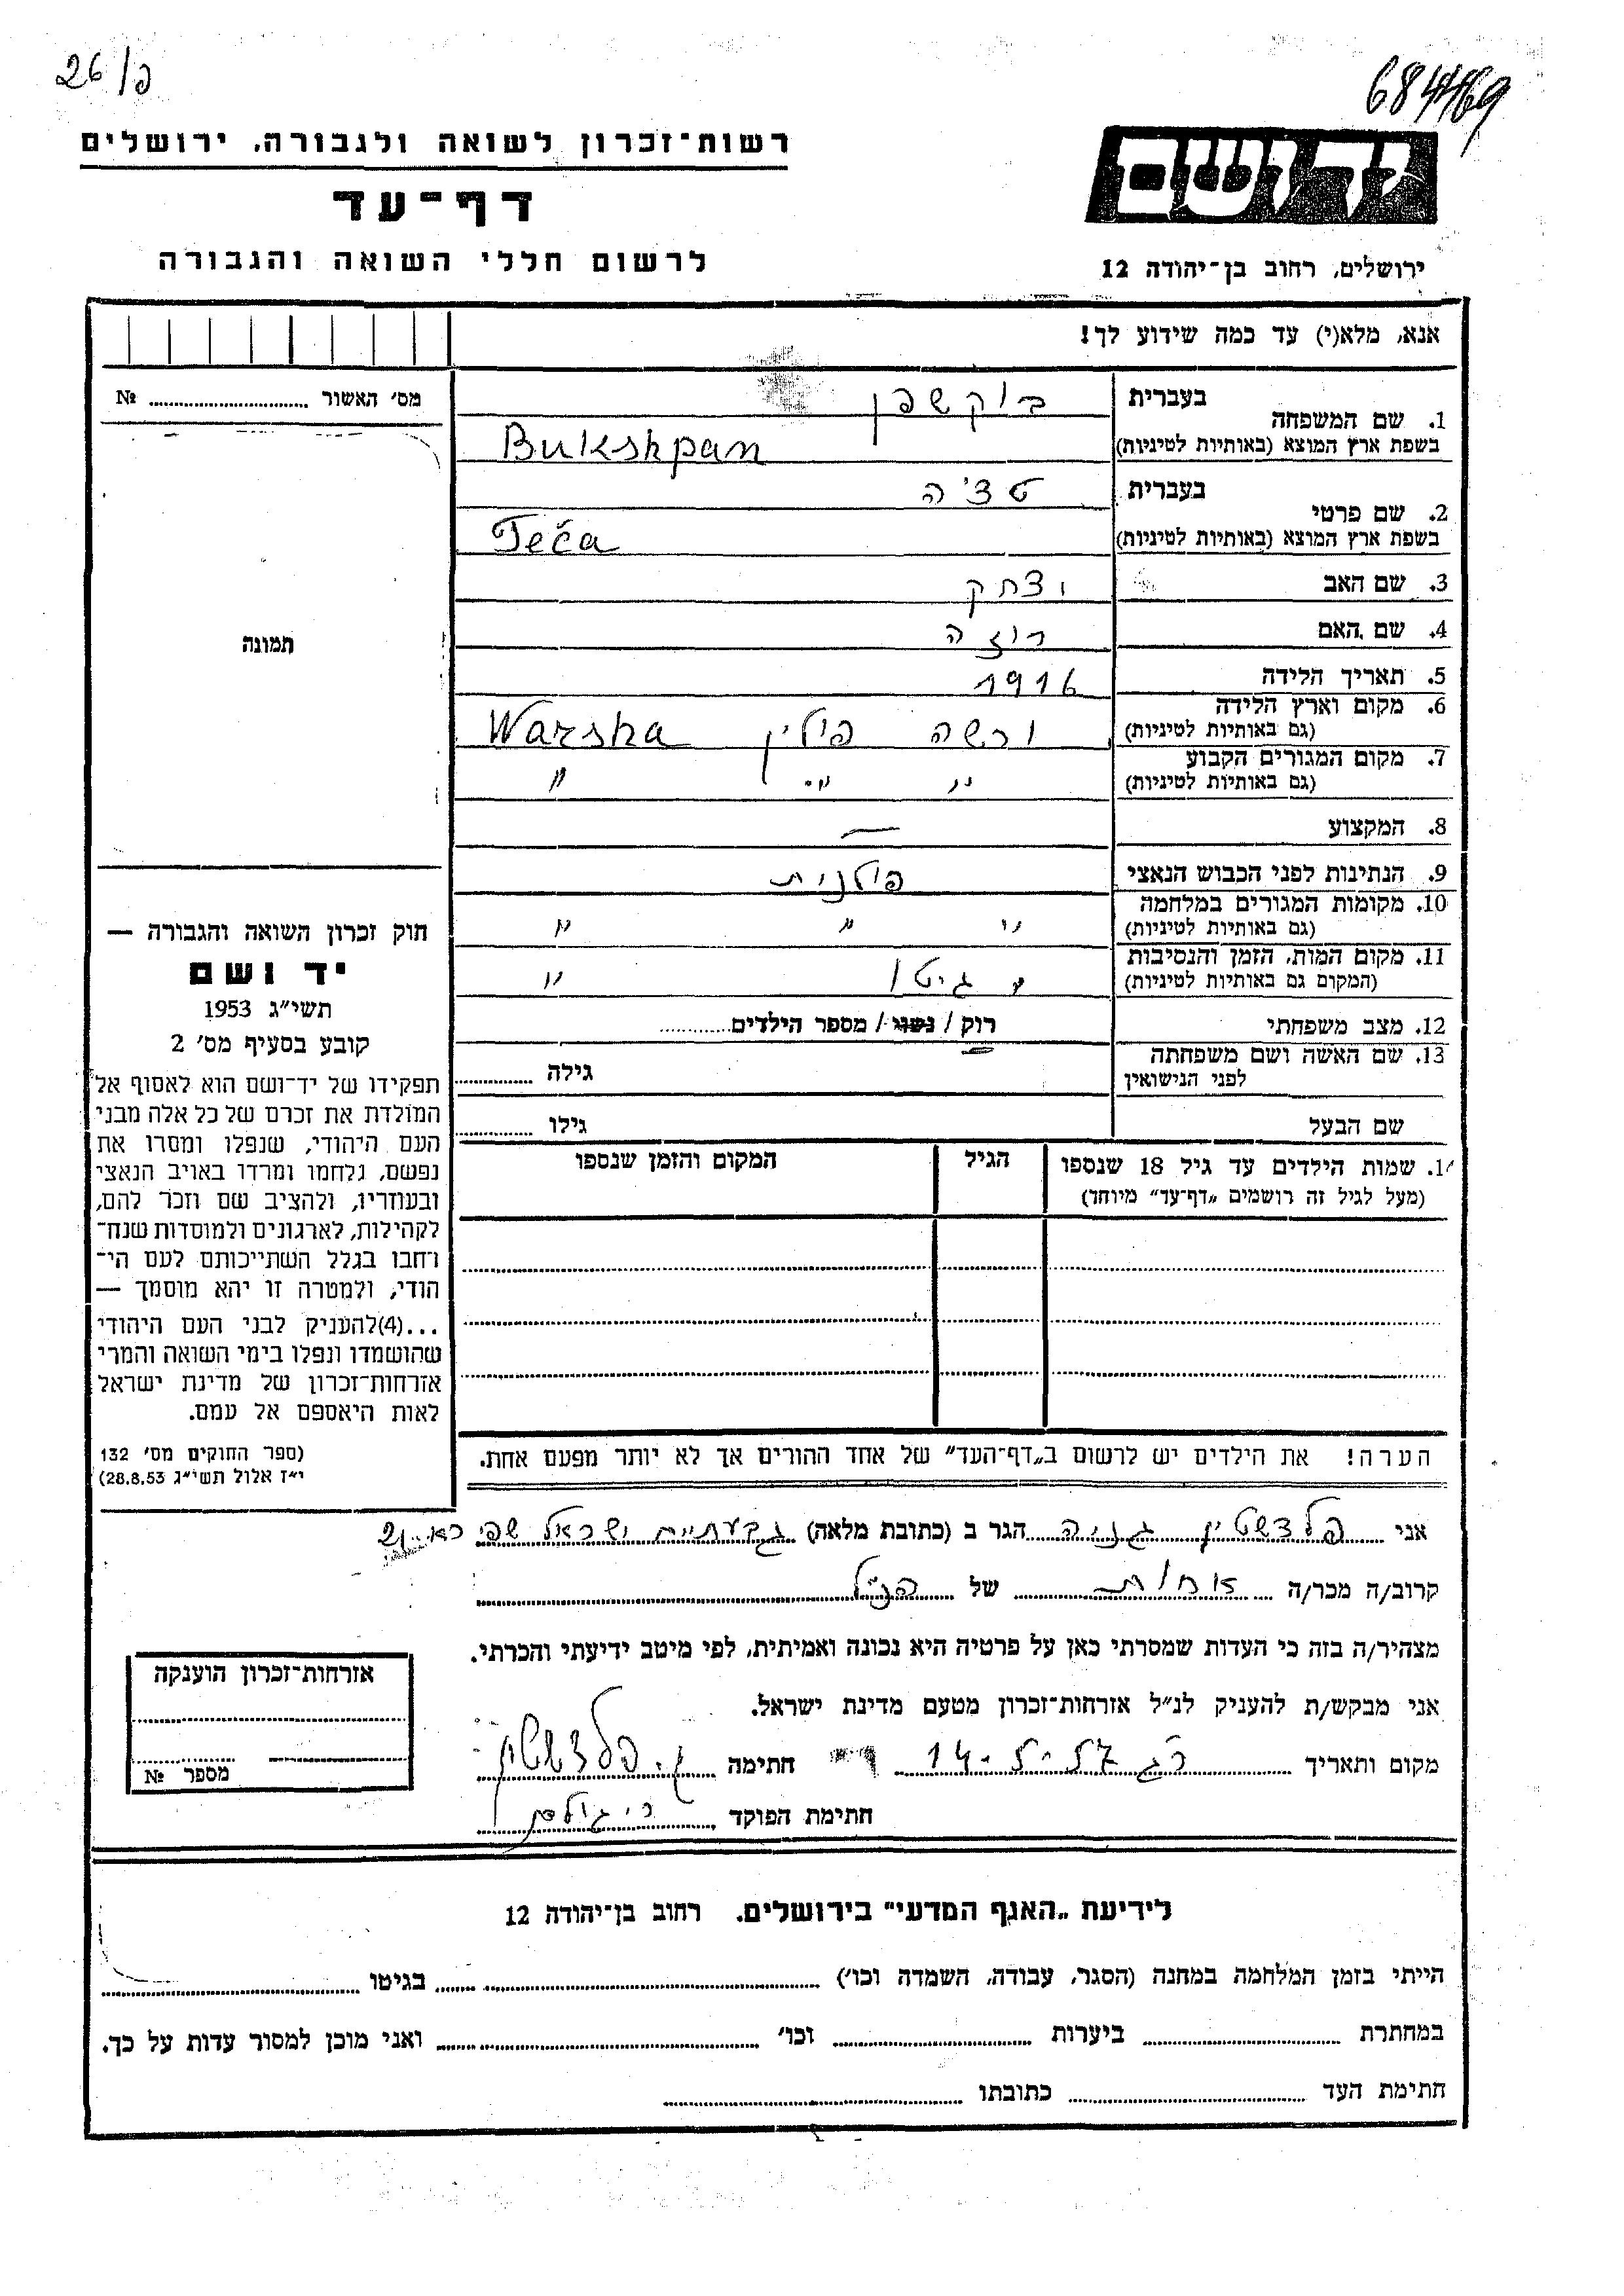 26/פ
684469
רשות־זכרון לשואה ולגבורה, ירושלים
דף־עד
לרשום חללי השואה והגבורה
יד ושם
ירושלים, רחוב בן־יהודה 12
אנא, מלא(י) עד כמה שידוע לך!
מס׳ האשור ........ №
תמונה
1. שם המשפחה
בעברית בוקשפן
בשפת ארץ המוצא (באותיות לטיניות) Bukshpan
2. שם פרטי
בעברית טצ׳ה
בשפת ארץ המוצא (באותיות לטיניות) Teča
3. שם האב יצחק
4. שם האם רוזה
5. תאריך הלידה 1916
6. מקום וארץ הלידה (גם באותיות לטיניות) ורשה פולין Warsha
7. מקום המגורים הקבוע (גם באותיות לטיניות) " " "
8. המקצוע —
9. הנתינות לפני הכבוש הנאצי פולנית
10. מקומות המגורים במלחמה (גם באותיות לטיניות) " " "
11. מקום המות, הזמן והנסיבות (המקום גם באותיות לטיניות) " גיטו "
12. מצב משפחתי רוק / נשוי / מספר הילדים........
13. שם האשה ושם משפחתה לפני הנישואין גילה ........
שם הבעל גילו ........
14. שמות הילדים עד גיל 18 שנספו
(מעל לגיל זה רושמים „דף־עד״ מיוחד)
הגיל
המקום והזמן שנספו
הערה! את הילדים יש לרשום ב„דף־העד״ של אחד ההורים אך לא יותר מפעם אחת.
חוק זכרון השואה והגבורה —
יד ושם
תשי״ג 1953
קובע בסעיף מס׳ 2
תפקידו של יד־ושם הוא לאסוף אל
המולדת את זכרם של כל אלה מבני
העם היהודי, שנפלו ומסרו את
נפשם, נלחמו ומרדו באויב הנאצי
ובעוזריו, ולהציב שם וזכר להם,
לקהילות, לארגונים ולמוסדות שנח־
רבו בגלל השתייכותם לעם הי־
הודי, ולמטרה זו יהא מוסמך —
...(4)להעניק לבני העם היהודי
שהושמדו ונפלו בימי השואה והמרי
אזרחות־זכרון של מדינת ישראל
לאות היאספם אל עמם.
(ספר החוקים מס׳ 132
י״ז אלול תשי״ג 28.8.53)
אני פלדשטין גניה הגר ב (כתובת מלאה) גבעתיים ישראל
קרוב/ה מכר/ה אחות של הנ״ל
מצהיר/ה בזה כי העדות שמסרתי כאן על פרטיה היא נכונה ואמיתית, לפי מיטב ידיעתי והכרתי.
אני מבקש/ת להעניק לנ״ל אזרחות־זכרון מטעם מדינת ישראל.
מקום ותאריך ר״ג 14-5-57 חתימה ג. פלדשטין
חתימת הפוקד
אזרחות־זכרון הוענקה
מספר №
לידיעת „האגף המדעי״ בירושלים. רחוב בן־יהודה 12
הייתי בזמן המלחמה במחנה (הסגר, עבודה, השמדה וכו׳) ........ בגיטו ........
במחתרת ........ ביערות ........ וכו׳ ........ ואני מוכן למסור עדות על כך.
חתימת העד ........ כתובתו ........